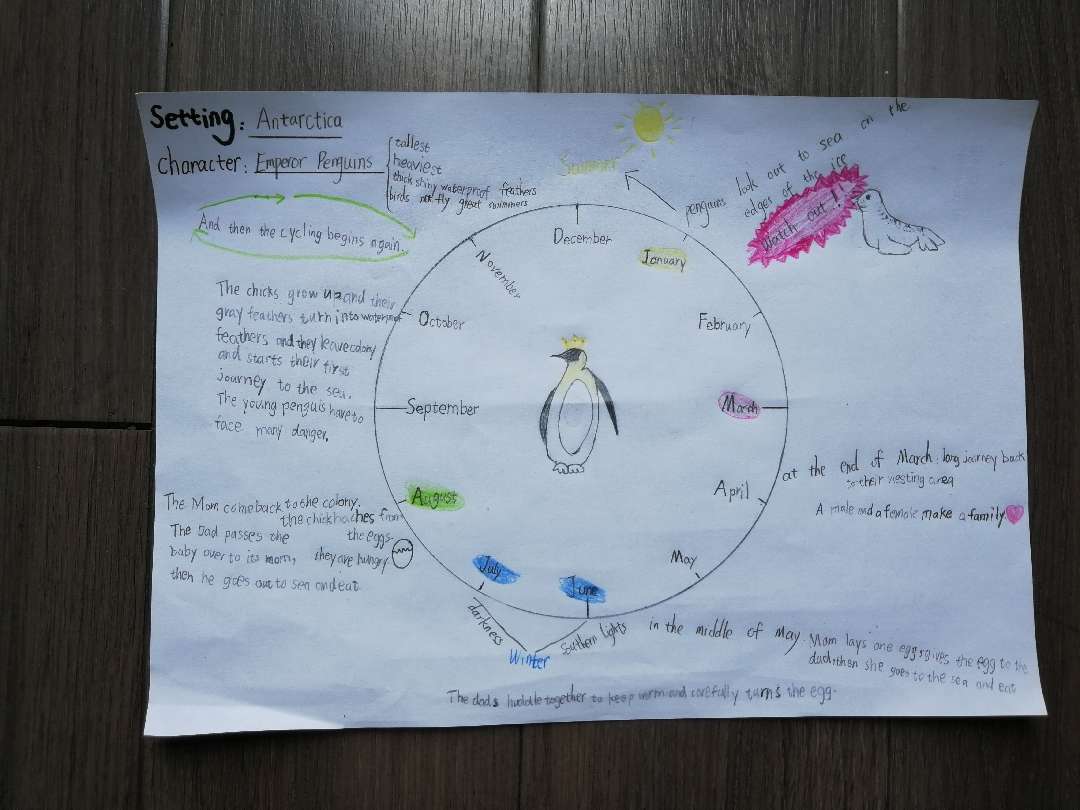 Setting: Antarctica
character: Emperor Penguins
tallest
heaviest
thick shiny waterproof feathers
birds not fly great swimmers
And then the cycling begins again.
Summer
penguins look out to sea on the
edges of the ice
Watch out!!
December
January
February
March
April
May
June
July
August
September
October
November
at the end of March. long journey back
to their nesting area
A male and a female make a family
in the middle of May. Mom lays one egg gives the egg to the
dad, then she goes to the sea and eat
Southern Lights
darkness
Winter
The dads huddle together to keep warm and carefully turns the egg.
The Mom come back to the colony.
the chick haches from
the eggs.
The Dad passes the
baby over to its mom,
they are hungry
then he goes out to sea and eat
The chicks grow up and their
gray feathers turn into waterproof
feathers and they leave colony
and starts their first
journey to the sea.
The young penguis have to
face many danger.